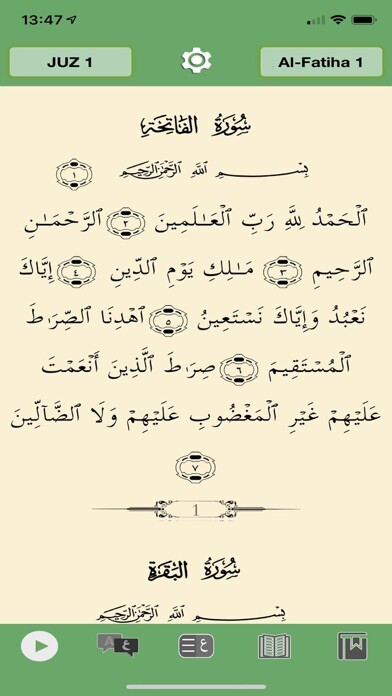 13:47
JUZ 1
Al-Fatiha 1
سُورَةُ الفَاتِحَةِ
بِسْمِ ٱللَّهِ ٱلرَّحْمَٰنِ ٱلرَّحِيمِ ١
ٱلْحَمْدُ لِلَّهِ رَبِّ ٱلْعَـٰلَمِينَ ٢ ٱلرَّحْمَـٰنِ
ٱلرَّحِيمِ ٣ مَـٰلِكِ يَوْمِ ٱلدِّينِ ٤ إِيَّاكَ
نَعْبُدُ وَإِيَّاكَ نَسْتَعِينُ ٥ ٱهْدِنَا ٱلصِّرَٰطَ
ٱلْمُسْتَقِيمَ ٦ صِرَٰطَ ٱلَّذِينَ أَنْعَمْتَ
عَلَيْهِمْ غَيْرِ ٱلْمَغْضُوبِ عَلَيْهِمْ وَلَا ٱلضَّآلِّينَ
٧
1
سُورَةُ البَقَرَةِ
بِسْمِ ٱللَّهِ ٱلرَّحْمَٰنِ ٱلرَّحِيمِ
A ع
ع